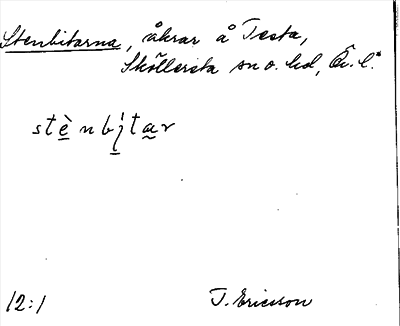 Stenbitarna, åkrar å Testa,
Sköllersta sn o. hd, Ör. l.
stènbi̯tar
12:1
T. Ericsson